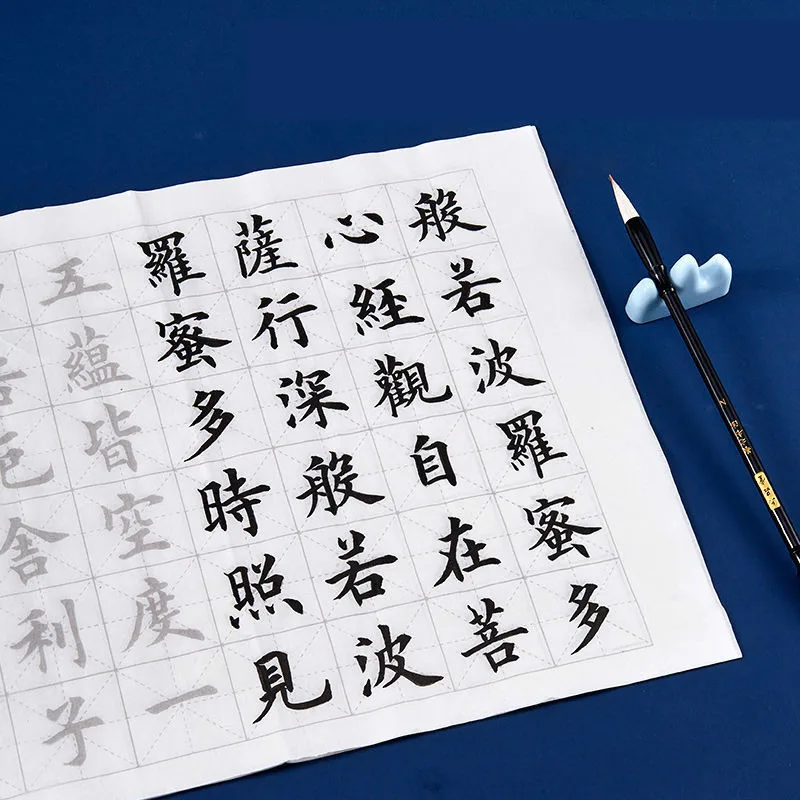 般若波羅蜜多
心經觀自在菩
薩行深般若波
羅蜜多時照見
五蘊皆空度一
苦厄舍利子